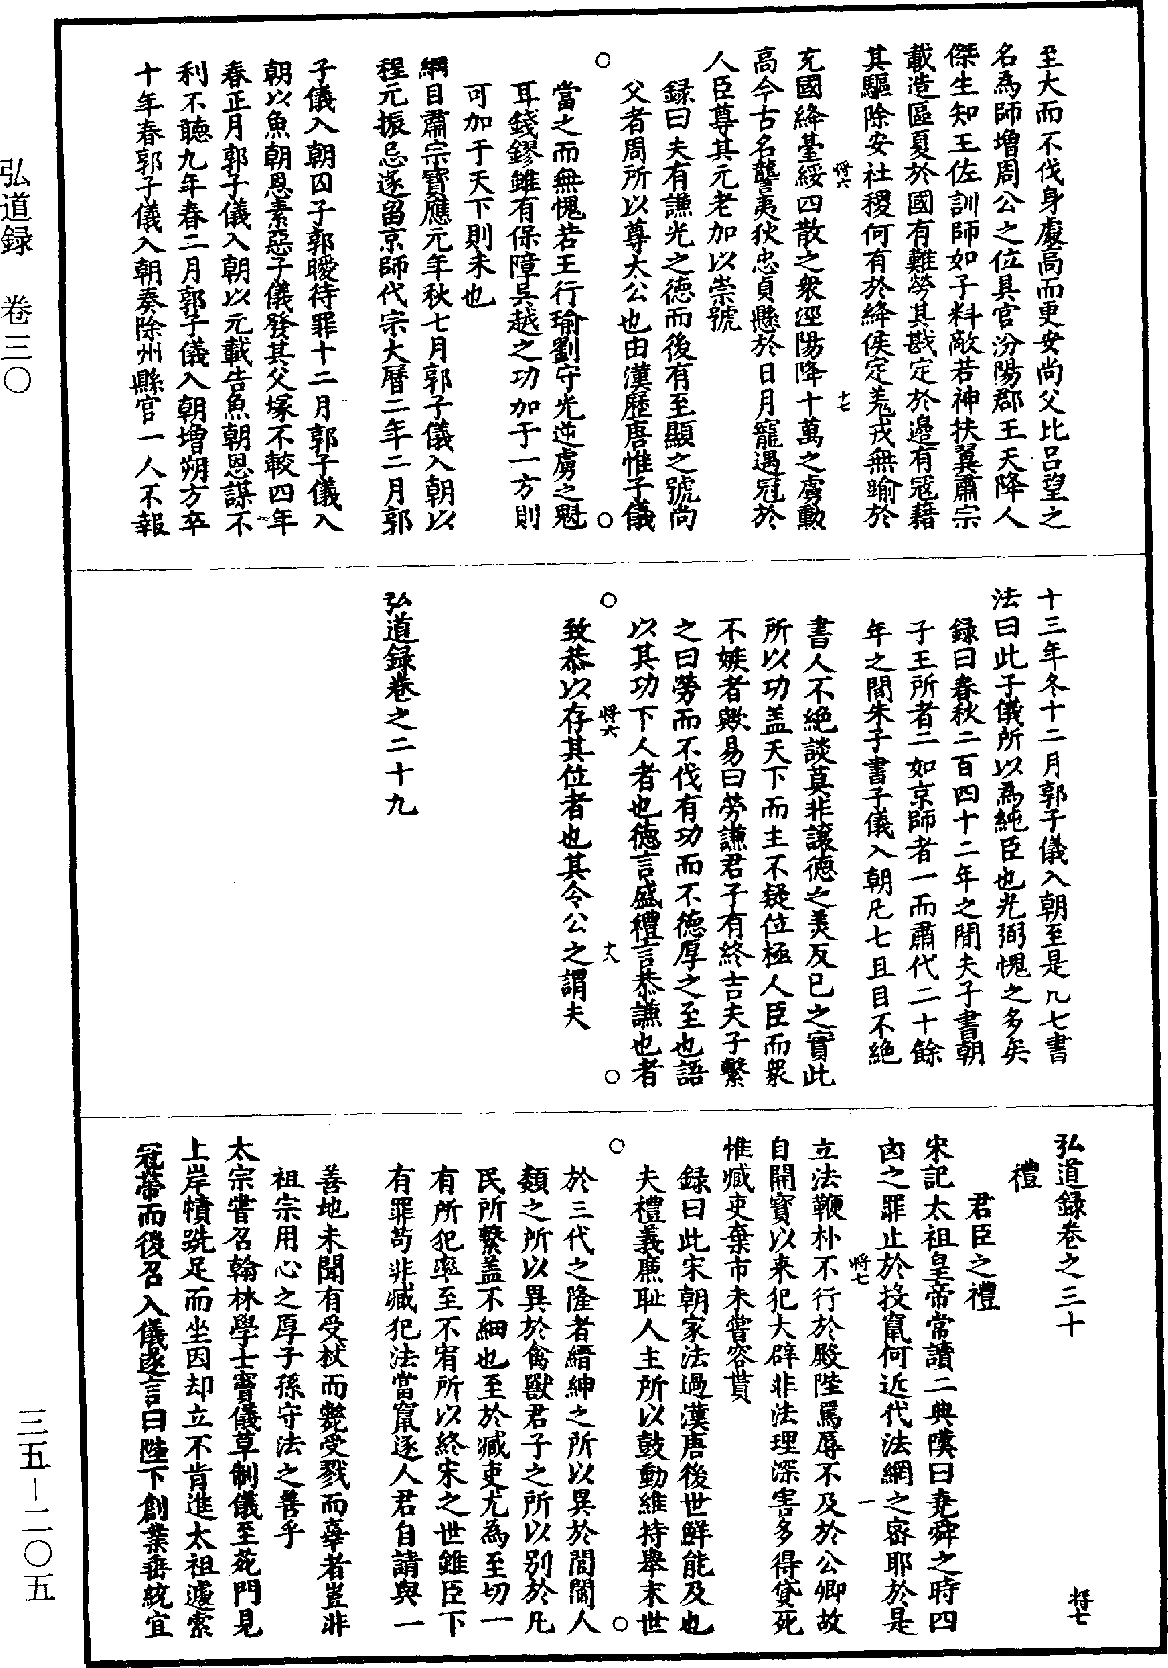 至大而不伐身處高而更安尚父比呂望之
名為師增周公之位具官汾陽郡王天降人
傑生知王佐訓師如子料敵若神扶翼肅宗
載造區夏於國有難勞其戡定於邊有寇藉
其驅除安社稷何有於絳侯定羌戎無踰於
充國絳臺綏四散之衆逕陽降十萬之虜勳
高今古名讋夷狄忠貞懸於日月寵遇冠於
人臣尊其元老加以崇號
錄曰夫有謙光之德而後有至顯之號尚
父者周所以尊太公也由漢歷唐惟子儀
當之而無愧若王行瑜劉守光逆虜之魁
耳錢鏐雖有保障吳越之功加于一方則
可加于天下則未也
綱目肅宗寶應元年秋七月郭子儀入朝以
程元振忌遂留京師代宗大曆二年二月郭
子儀入朝因子郭曖待罪十二月郭子儀入
朝以魚朝恩素惡子儀發其父塚不較四年
春正月郭子儀入朝以元載告魚朝恩謀不
利不聽九年春二月郭子儀入朝增朔方卒
十年春郭子儀入朝奏除州縣官一人不報
將六
十七
十三年冬十二月郭子儀入朝至是凡七書
法曰此子儀所以為純臣也光弼愧之多矣
錄曰春秋二百四十二年之間夫子書朝
子王所者二如京師者一而肅代二十餘
年之間朱子書子儀入朝凡七且目不絕
書人不絕談莫非讓德之美反已之實此
所以功盖天下而主不疑位極人臣而衆
不嫉者歟易曰勞謙君子有終吉夫子繫
之曰勞而不伐有功而不德厚之至也語
以其功下人者也德言盛禮言恭謙也者
致恭以存其位者也其令公之謂夫
將六
十八
弘道録卷之二十九
弘道録卷之三十
將七
禮
君臣之禮
宋記太祖皇帝常讀二典嘆曰堯舜之時四
凶之罪止於投竄何近代法網之密耶於是
立法鞭朴不行於殿陛罵辱不及於公卿故
自開寶以來犯大辟非法理深害多得貸死
惟贓吏棄市未嘗容貰
錄曰此宋朝家法過漢唐後世鮮能及也
夫禮義廉耻人主所以鼓動維持舉末世
於三代之隆者縉紳之所以異於閭閻人
類之所以異於禽獸君子之所以別於凡
民所繫盖不細也至於贓吏尤為至切一
有所犯率至不宥所以終宋之世雖臣下
有罪苟非贓犯法當竄逐人君自請與一
善地未聞有受杖而斃受戮而辜者豈非
祖宗用心之厚子孫守法之善乎
太宗甞召翰林學士竇儀草制儀至苑門見
上岸幘跣足而坐因却立不肯進太祖遽索
冠帶而後召入儀遂言曰陛下創業垂統宜
將七
一
弘道録 卷三〇
三五－二〇五